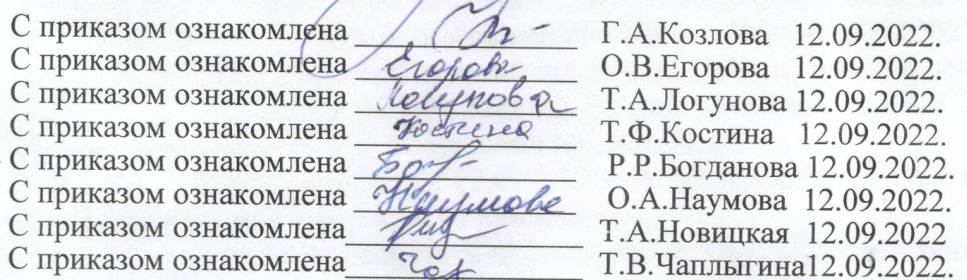 С приказом ознакомлена Г.А.Козлова 12.09.2022.
С приказом ознакомлена Егорова О.В.Егорова 12.09.2022.
С приказом ознакомлена Логунова Т.А.Логунова 12.09.2022.
С приказом ознакомлена Костина Т.Ф.Костина 12.09.2022.
С приказом ознакомлена Р.Р.Богданова 12.09.2022.
С приказом ознакомлена Наумова О.А.Наумова 12.09.2022.
С приказом ознакомлена Т.А.Новицкая 12.09.2022
С приказом ознакомлена Т.В.Чаплыгина12.09.2022.